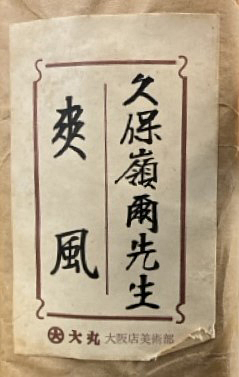 久保嶺爾先生
爽風
大 大丸 大阪店美術部